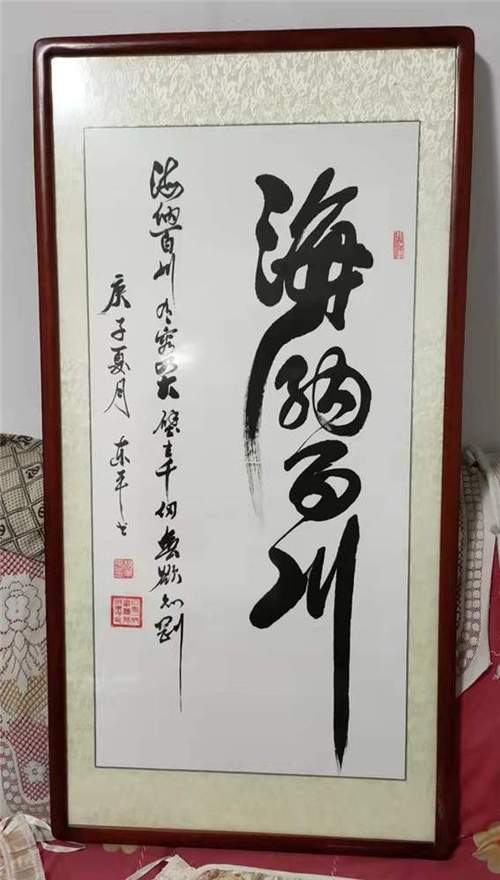 海纳百川
海纳百川有容乃大壁立千仞无欲则刚
庚子夏月 东平书